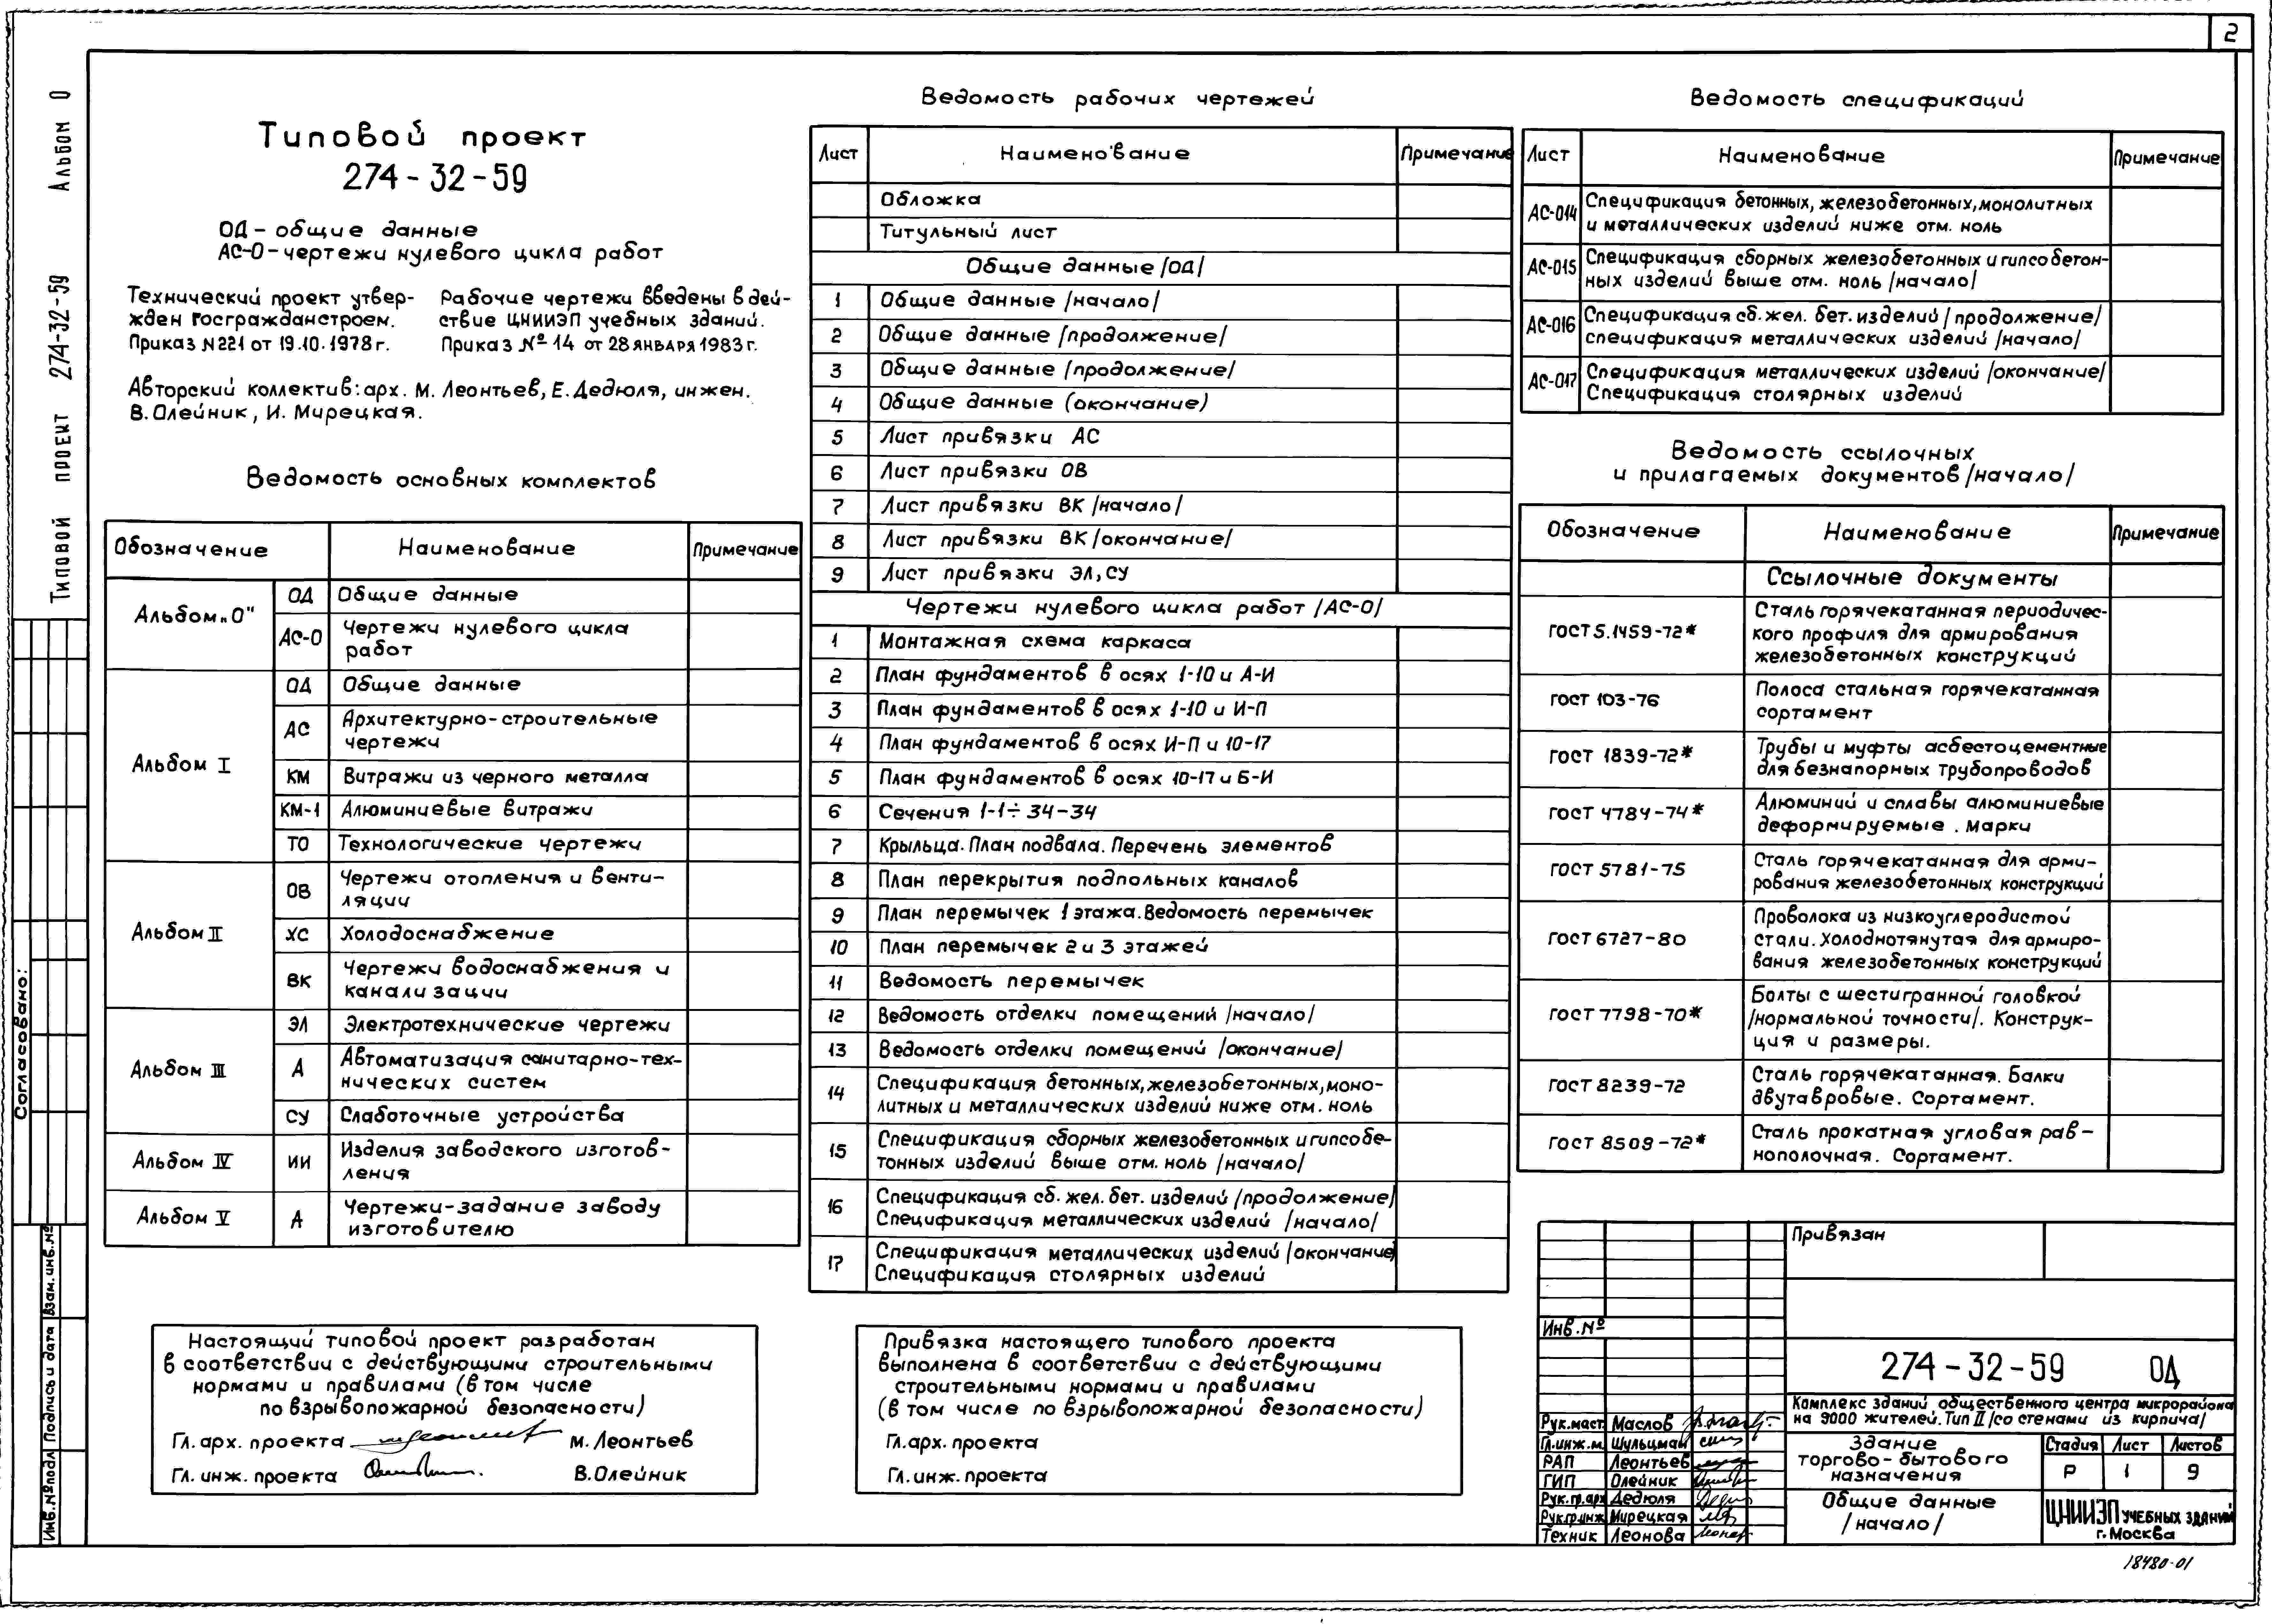 2
Альбом 0
Типовой проект 274-32-59
Типовой проект
274-32-59
ОД - общие данные
АС-0 - чертежи нулевого цикла работ
Технический проект утвер-
жден Госгражданстроем.
Приказ N221 от 19.10.1978г.
Рабочие чертежи введены в дей-
ствие ЦНИИЭП учебных зданий.
Приказ № 14 от 28 января 1983г.
Авторский коллектив: арх. М. Леонтьев, Е. Дедюля, инжен.
В. Олейник, И. Мирецкая.
Ведомость основных комплектов
Обозначение Наименование Примечание
Альбом „0"
ОД Общие данные
АС-0 Чертежи нулевого цикла
работ
Альбом I
ОД Общие данные
АС Архитектурно-строительные
чертежи
КМ Витражи из черного металла
КМ-1 Алюминиевые витражи
ТО Технологические чертежи
Альбом II
ОВ Чертежи отопления и венти-
ляции
ХС Холодоснабжение
ВК Чертежи водоснабжения и
канализации
Альбом III
ЭЛ Электротехнические чертежи
А Автоматизация санитарно-тех-
нических систем
СУ Слаботочные устройства
Альбом IV ИИ Изделия заводского изготов-
ления
Альбом V А Чертежи-задание заводу
изготовителю
Настоящий типовой проект разработан
в соответствии с действующими строительными
нормами и правилами (в том числе
по взрывопожарной безопасности)
Гл. арх. проекта М. Леонтьев
Гл. инж. проекта В. Олейник
Ведомость рабочих чертежей
Лист Наименование Примечание
Обложка
Титульный лист
Общие данные /ОД/
1 Общие данные /начало/
2 Общие данные /продолжение/
3 Общие данные /продолжение/
4 Общие данные (окончание)
5 Лист привязки АС
6 Лист привязки ОВ
7 Лист привязки ВК /начало/
8 Лист привязки ВК /окончание/
9 Лист привязки ЭЛ, СУ
Чертежи нулевого цикла работ /АС-0/
1 Монтажная схема каркаса
2 План фундаментов в осях 1-10 и А-И
3 План фундаментов в осях 1-10 и И-П
4 План фундаментов в осях И-П и 10-17
5 План фундаментов в осях 10-17 и Б-И
6 Сечения 1-1÷34-34
7 Крыльца. План подвала. Перечень элементов
8 План перекрытия подпольных каналов
9 План перемычек 1 этажа. Ведомость перемычек
10 План перемычек 2 и 3 этажей
11 Ведомость перемычек
12 Ведомость отделки помещений /начало/
13 Ведомость отделки помещений /окончание/
14 Спецификация бетонных, железобетонных, моно-
литных и металлических изделий ниже отм. ноль
15 Спецификация сборных железобетонных и гипсобе-
тонных изделий выше отм. ноль /начало/
16 Спецификация сб. жел. бет. изделий /продолжение/
Спецификация металлических изделий /начало/
17 Спецификация металлических изделий /окончание/
Спецификация столярных изделий
Привязка настоящего типового проекта
выполнена в соответствии с действующими
строительными нормами и правилами
(в том числе по взрывопожарной безопасности)
Гл. арх. проекта
Гл. инж. проекта
Ведомость спецификаций
Лист Наименование Примечание
АС-014 Спецификация бетонных, железобетонных, монолитных
и металлических изделий ниже отм. ноль
АС-015 Спецификация сборных железобетонных и гипсобетон-
ных изделий выше отм. ноль /начало/
АС-016 Спецификация сб. жел. бет. изделий /продолжение/
спецификация металлических изделий /начало/
АС-017 Спецификация металлических изделий /окончание/
Спецификация столярных изделий
Ведомость ссылочных
и прилагаемых документов /начало/
Обозначение Наименование Примечание
Ссылочные документы
ГОСТ 5.1459-72* Сталь горячекатанная периодичес-
кого профиля для армирования
железобетонных конструкций
ГОСТ 103-76 Полоса стальная горячекатанная
сортамент
ГОСТ 1839-72* Трубы и муфты асбестоцементные
для безнапорных трубопроводов
ГОСТ 4784-74* Алюминий и сплавы алюминиевые
деформируемые. Марки
ГОСТ 5781-75 Сталь горячекатанная для арми-
рования железобетонных конструкций
ГОСТ 6727-80 Проволока из низкоуглеродистой
стали. Холоднотянутая для армиро-
вания железобетонных конструкций
ГОСТ 7798-70* Болты с шестигранной головкой
/нормальной точности/. Конструк-
ция и размеры.
ГОСТ 8239-72 Сталь горячекатанная. Балки
двутавровые. Сортамент.
ГОСТ 8509-72* Сталь прокатная угловая рав-
нополочная. Сортамент.
Привязан
Инв. №
274-32-59 ОД
Комплекс зданий общественного центра микрорайона
на 9000 жителей. Тип II /со стенами из кирпича/
Рук. маст. Маслов
Гл. инж. м. Шульцман
РАП Леонтьев
ГИП Олейник
Рук. гр. арх Дедюля
Рук. гр. инж Мирецкая
Техник Леонова
Здание
торгово-бытового
назначения
Стадия Лист Листов
Р 1 9
Общие данные
/начало/
ЦНИИЭП учебных зданий
г. Москва
18480-01
Согласовано:
Инв. № подл Подпись и дата Взам. инв. №